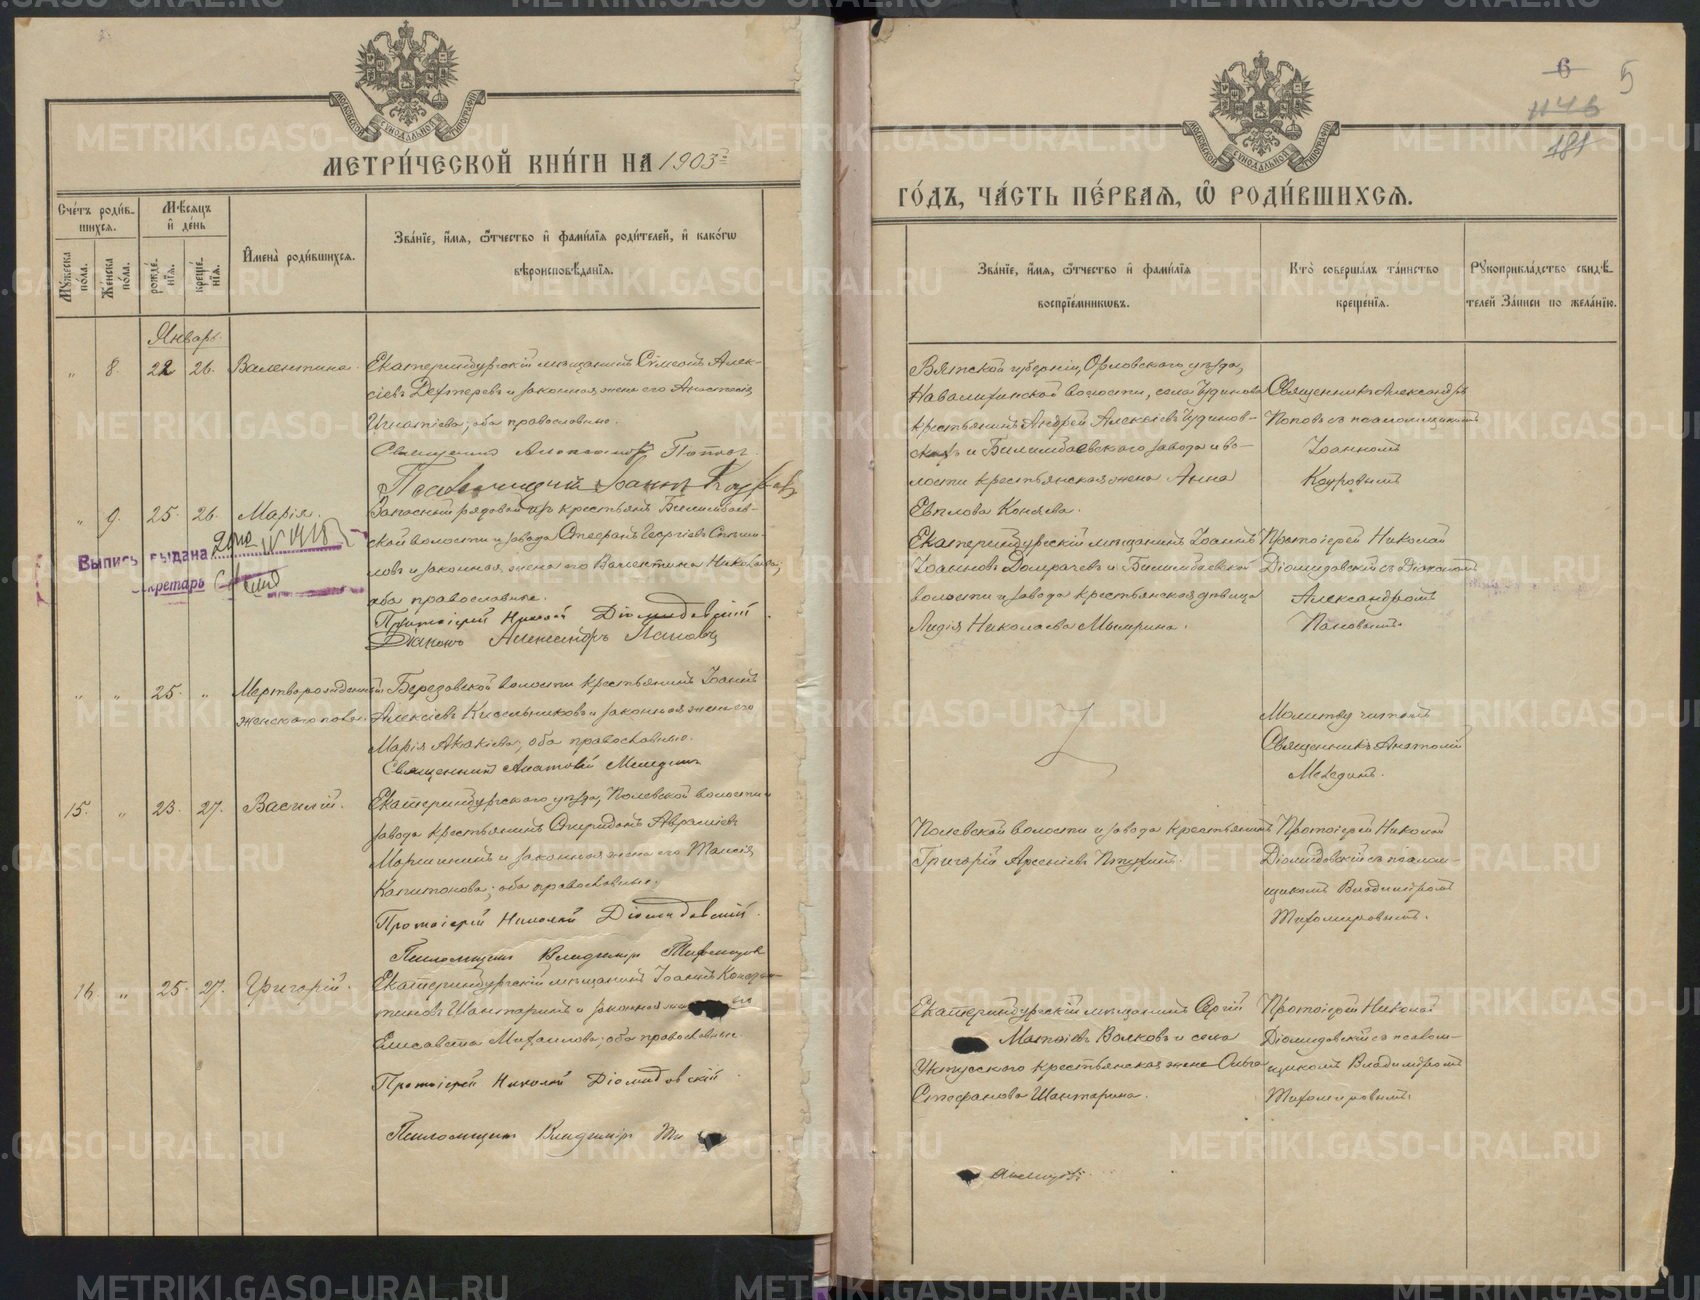 МОСКОВСКОЙ СѴНОДАЛЬНОЙ ТИПОГРАФІИ
МЕТРИ́ЧЕСКОЙ КНИ́ГИ НА 1903
Сче́тъ роди́в-
шихся.
Мѣ́сяцъ
и҆ де́нь
Му́жеска
по́ла.
Же́нска
по́ла.
рожде́-
нїѧ.
креще́-
нїѧ.
И҆мена̀ роди́вшихсѧ.
Зва́нїе, и҆́мѧ, ѻ҆́тчество и҆ фами́лїѧ роди́телей, и҆ како́гѡ
вѣроисповѣ́данїѧ.
Январь.
„ 8. 22 26. Валентина.
Екатеринбургскій мѣщанинъ Сѵмеонъ Алек-
сіевъ Дехтеревъ и законная жена его Анастасія
Игнатіева; оба православные.
Священникъ Александръ Поповъ.
Псаломщикъ Іоаннъ Кауровъ
„ 9. 25. 26. Марія.
Запасный рядовой изъ крестьянъ Билимбаев-
ской волости и завода Стефанъ Георгіевъ
и законная жена его Валентина Николаева;
оба православные.
Протоіерей Николай Діомидовскій
Діаконъ Александръ Пановъ
Выпись выдана
Секретарь
„ „ 25. „ Мертворожденный
женскаго пола.
Березовской волости крестьянинъ Іоаннъ
Алексіевъ Кисельниковъ и законная жена его
Марія Акакіева; оба православные.
Священникъ Анатолій
15. „ 23. 27. Василій.
Екатеринбургскаго уѣзда, Полевской волости и
завода крестьянинъ Спиридонъ Авраміевъ
и законная жена его Таисія
Капитонова; оба православные.
Протоіерей Николай Діомидовскій.
Псаломщикъ Владиміръ Тихомировъ
16. „ 25. 27. Григорій.
Екатеринбургскій мѣщанинъ Іоаннъ Констан-
тиновъ Шантаринъ и законная жена его
Елисавета Михаилова; оба православные
Протоіерей Николай Діомидовскій
Псаломщикъ Владиміръ Ти
6 5
181
МОСКОВСКОЙ СѴНОДАЛЬНОЙ ТИПОГРАФІИ
ГО́ДЪ, ЧА́СТЬ ПЕ́РВАѦ, Ѡ҆ РОДИ́ВШИХСѦ.
Зва́нїе, и҆́мѧ, ѻ҆́тчество и҆ фами́лїѧ
воспрїе́мникѡвъ.
Кто̀ соверша́лъ та́инство
креще́нїѧ.
Рꙋкоприкла́дство свидѣ́-
телей за́писи по жела́нїю.
Вятской губерніи, Орловскаго уѣзда,
волости, села Чудинова
крестьянинъ Андрей Алексіевъ Чудинов-
скихъ и Билимбаевскаго завода и во-
лости крестьянская жена Анна
Евплова Коняева.
Священникъ Александръ
Поповъ съ псаломщикомъ
Іоанномъ
Кауровымъ
Екатеринбургскій мѣщанинъ Іоаннъ
Іоанновъ Домрачевъ и Билимбаевской
волости и завода крестьянская дѣвица
Лидія Николаева
Протоіерей Николай
Діомидовскій съ діакономъ
Александромъ
Пановымъ.
Молитву читалъ
Священникъ Анатолій
Полевской волости и завода крестьянинъ
Григорій Арсеніевъ
Протоіерей Николай
Діомидовскій съ псалом-
щикомъ Владиміромъ
Тихомировымъ.
Екатеринбургскій мѣщанинъ Сергій
Матѳіевъ Волковъ и села
Уктусскаго крестьянская жена Ольга
Стефанова Шантарина.
Протоіерей Николай
Діомидовскій съ псалом-
щикомъ Владиміромъ
Тихомировымъ.
METRIKI.GASO-URAL.RU